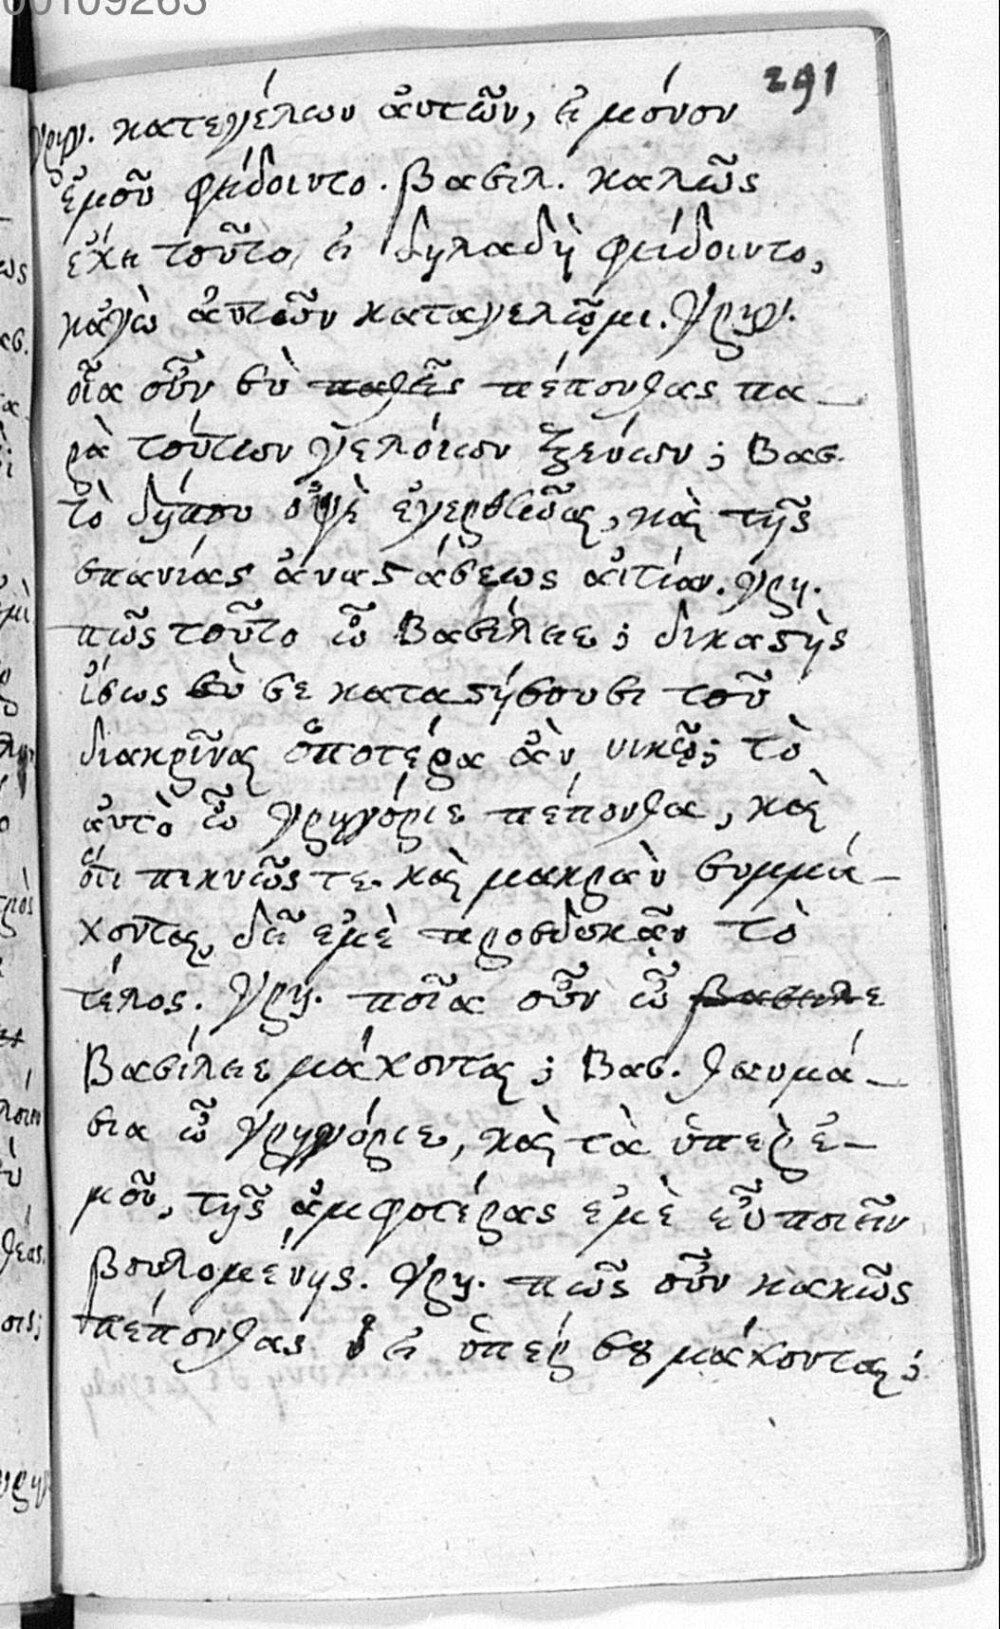 00109263
291
γρηγ. κατεγέλων ἀυτῶν, εἰ μόνον
ἐμοῦ φείδοιντο. βασιλ. καλῶς
ἔχει τοῦτο, εἰ δηλαδὴ φείδοιντο,
κἀγὼ ἀυτῶν καταγελῷμι. γρηγ.
οἷα οὖν σὺ παθεῖς πέπονθας πα-
ρὰ τούτων γελόιων ξένων; Βασ.
τὸ δήπου ὀψὲ ἐγερθῆναι, καὶ τῆς
σπανίας ἀναστάσεως ἀιτίαν. γρη.
πῶς τοῦτο ὦ Βασίλειε; δικαστὴς
ἴσως σὺ σε καταστήσουσι τοῦ
διακρῖναι ὁποτέρα ἂν νικῷ; τὸ
ἀυτὸ ὦ γρηγόριε πέπονθα, καὶ
ὅτι πικνῶς τε καὶ μακρὰν συμμά-
χονται, δεῖ ἐμὲ προσδοκᾷν τὸ
τέλος. γρη. ποῖα οὖν ὦ βασιλε
Βασίλειε μάχονται; Βασ. θαυμά-
σια ὦ γρηγόριε, καὶ τὰ ὑπὲρ ἐ-
μοῦ, τῆς ἀμφοτέρας ἐμὲ εὖ ποιεῖν
βουλομένης. γρη. πῶς οὖν κακῶς
πέπονθας εἰ ὑπὲρ σου μάχονται;